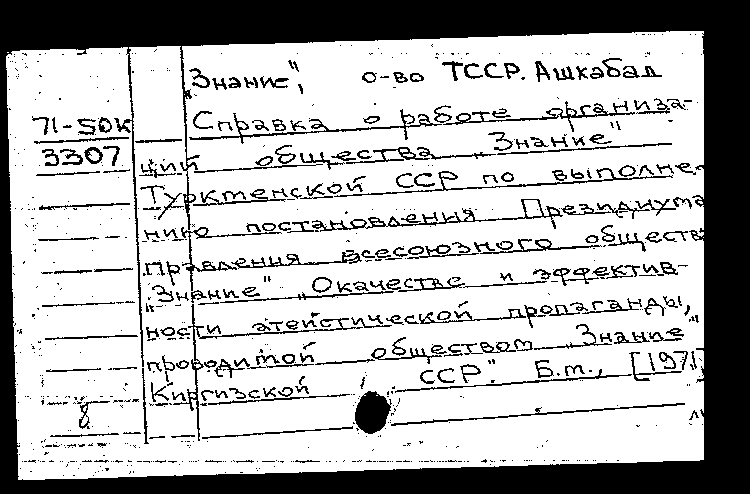 „Знание", о-во ТССР. Ашкабад
71-50К
Справка о работе организа-
3307
ций общества „Знание"
Туркменской ССР по выполне-
нию постановления Президиума
правления всесоюзного общества
„Знание" „Окачестве и эффектив-
ности атеистической пропаганды,
проводимой обществом „Знание"
Киргизской ССР". Б.м., [1971]
8